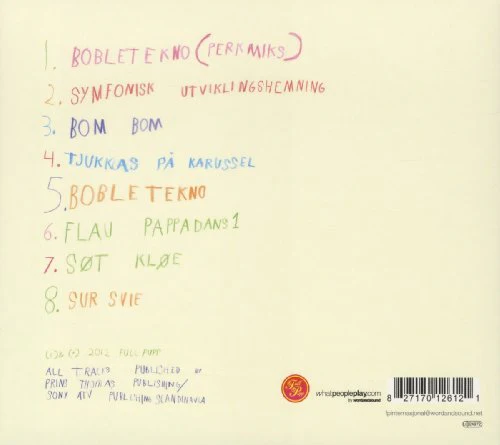 1. BOBLETEKNO (PERKMIKS)
2. SYMFONISK UTVIKLINGSHEMNING
3. BOM BOM
4. TJUKKAS PÅ KARUSSEL
5. BOBLETEKNO
6. FLAU PAPPADANS 1
7. SØT KLØE
8. SUR SVIE
(C)& (P) 2012 FULL PUPP
ALL TRACKS PUBLISHED BY
PRINS THOMAS PUBLISHING/
SONY ATV PUBLISHING SCANDINAVIA
whatpeopleplay.com
BY WORDANDSOUND
8 27170 12612 1
fpinternasjonal@wordandsound.net